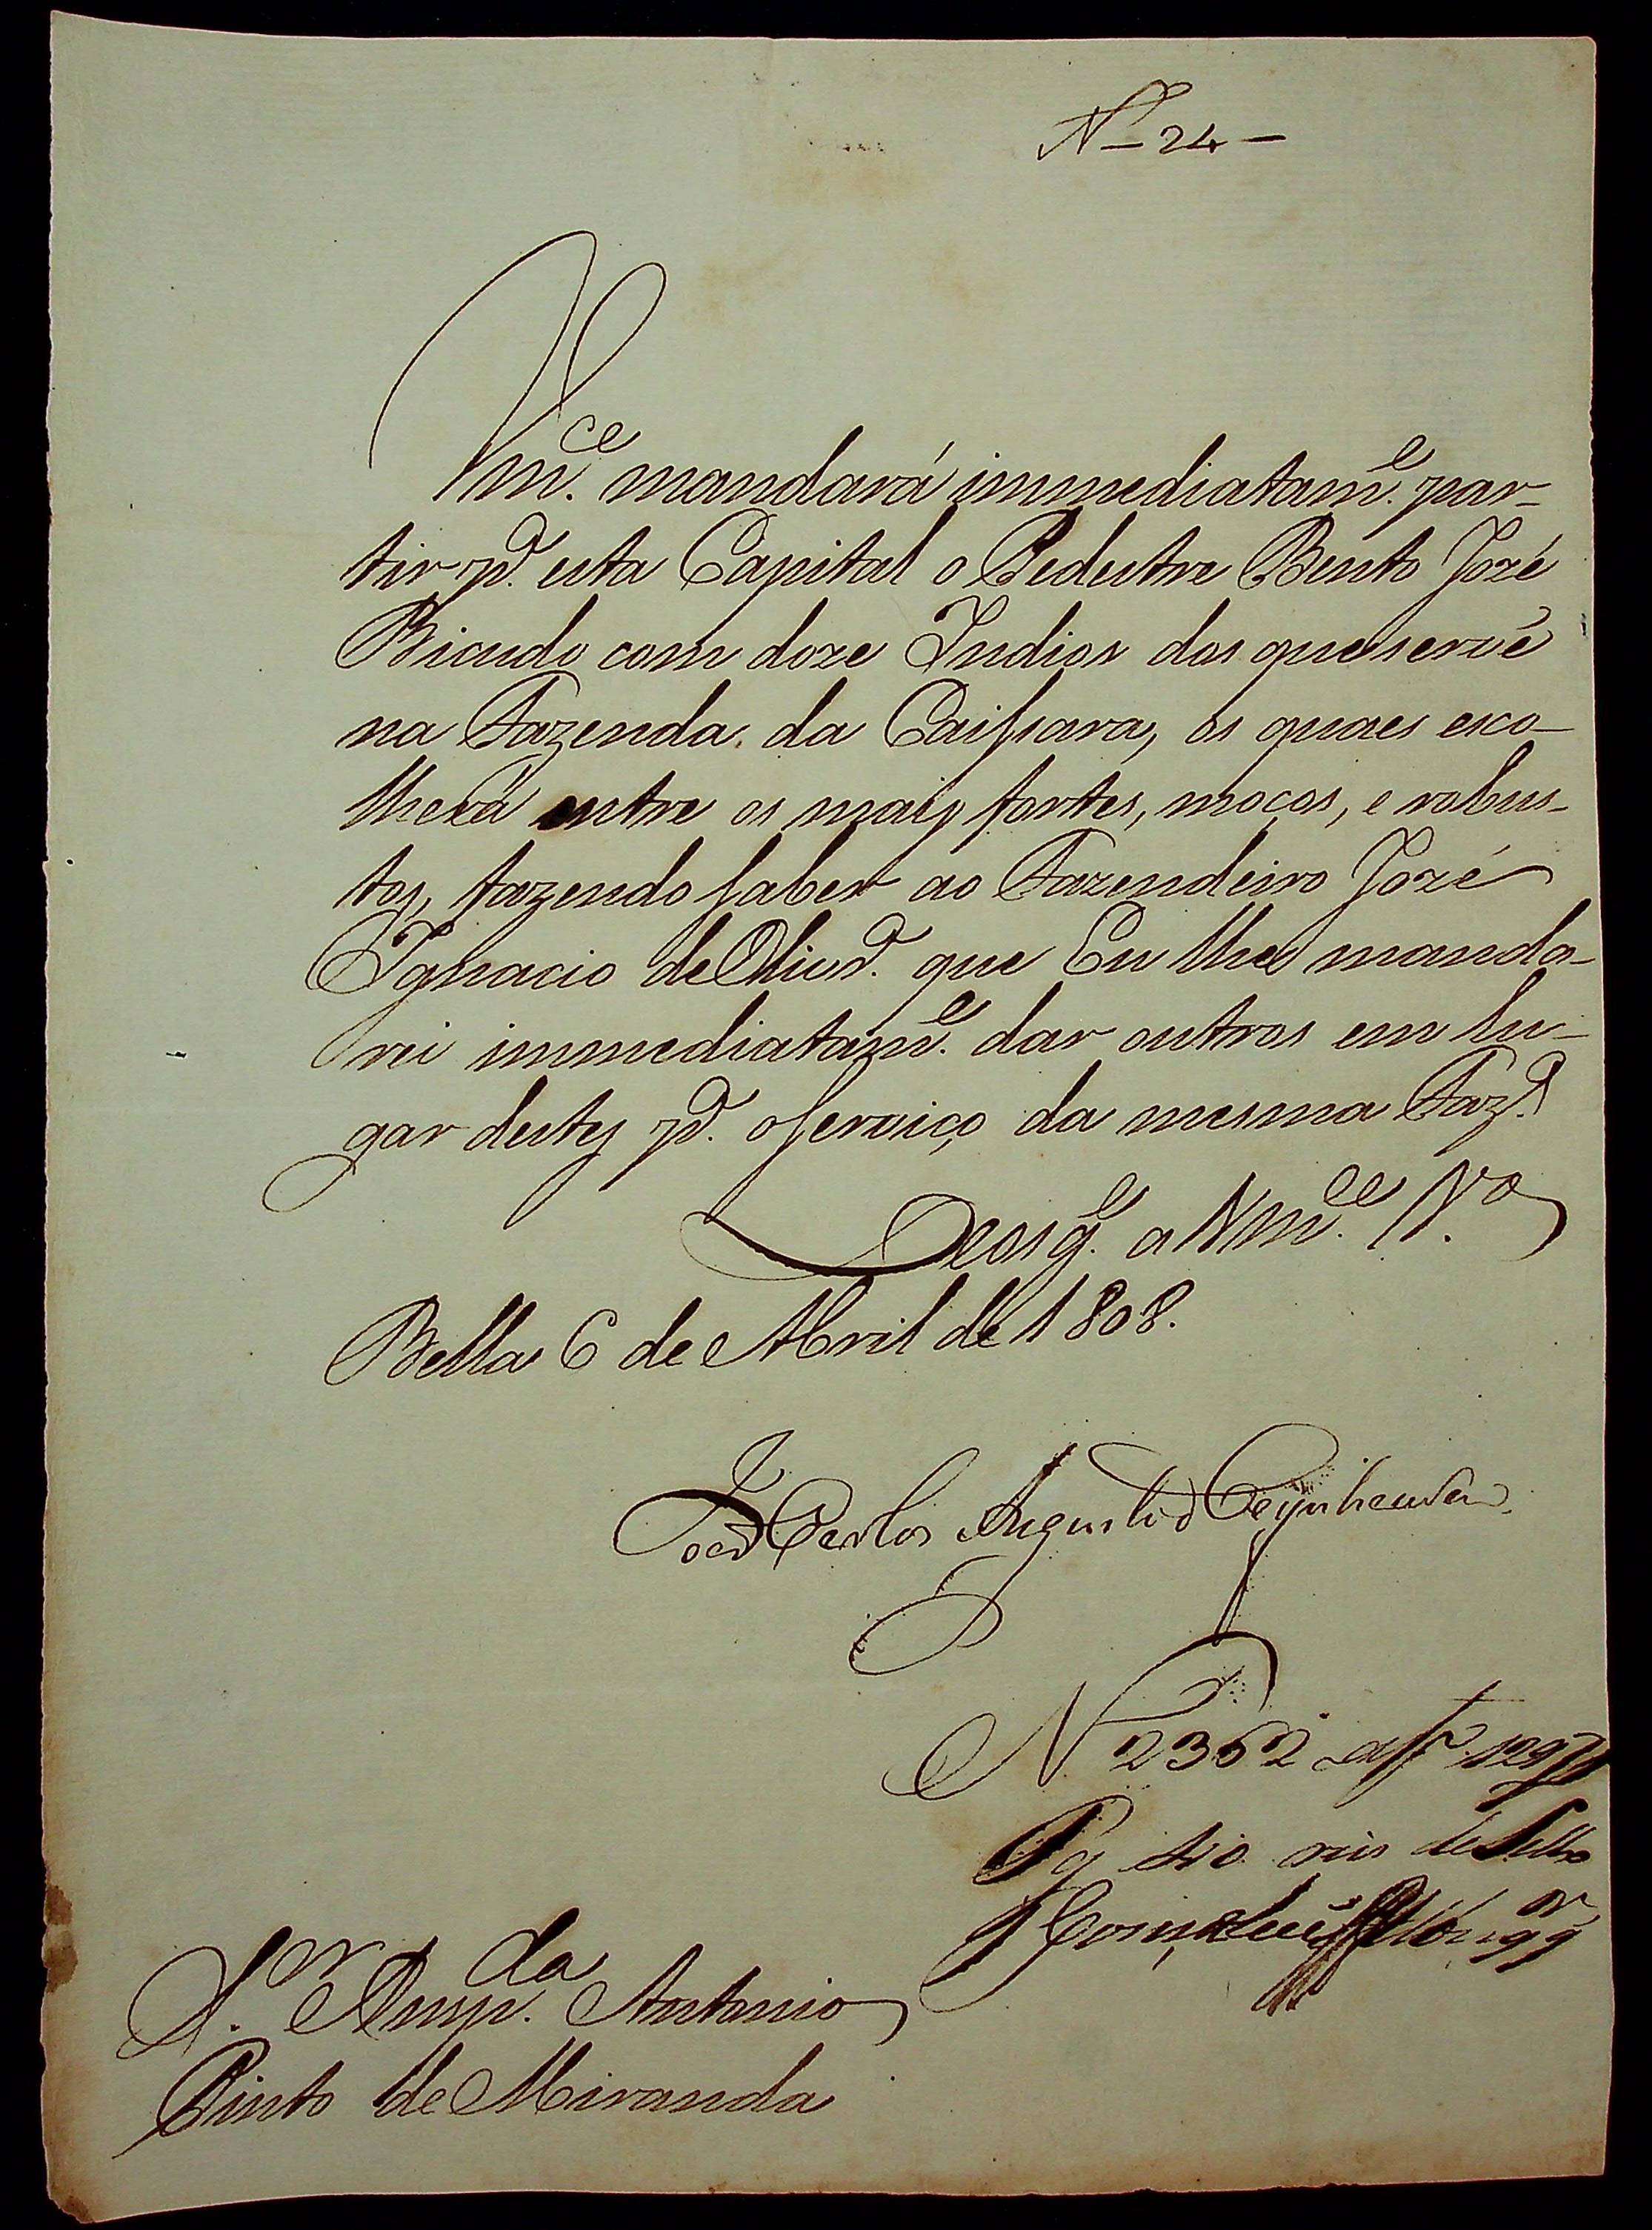 N.º 24
Vm.ce mandará immediatam.e par-
tir p.ª esta Capital o Pedestre Bento Jozé
Bicudo com doze Indios dos que servẽ
na Fazenda da Caissara, os quaes esco-
lherá entre os mais fortes, mocos, e robus-
tos, fazendo saber ao Fazendeiro Jozé
Ignacio de Oliv.ª que Eu lhe manda-
rei immediatam.e dar outros em lu-
gar destes p.ª o serviço da mesma Faz.ª
Deos g.e a Vm.ce V.ª
Bella 6 de Abril de 1808.
João Carlos Augusto d'Oeynhausen
N 2362
Pg reis de Sello
S.or Ansp.da Antonio
Pinto de Miranda